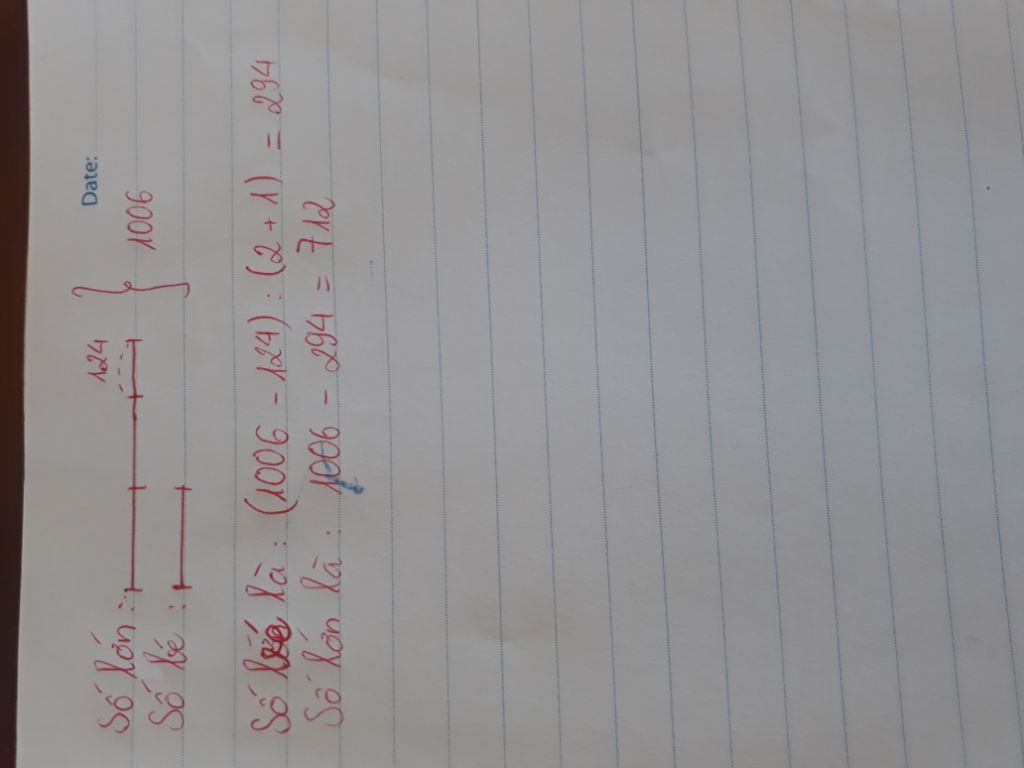 Date:
124
Số lớn:
1006
Số bé:
Số bé là: (1006 - 124) : (2 + 1) = 294
Số lớn là: 1006 - 294 = 712